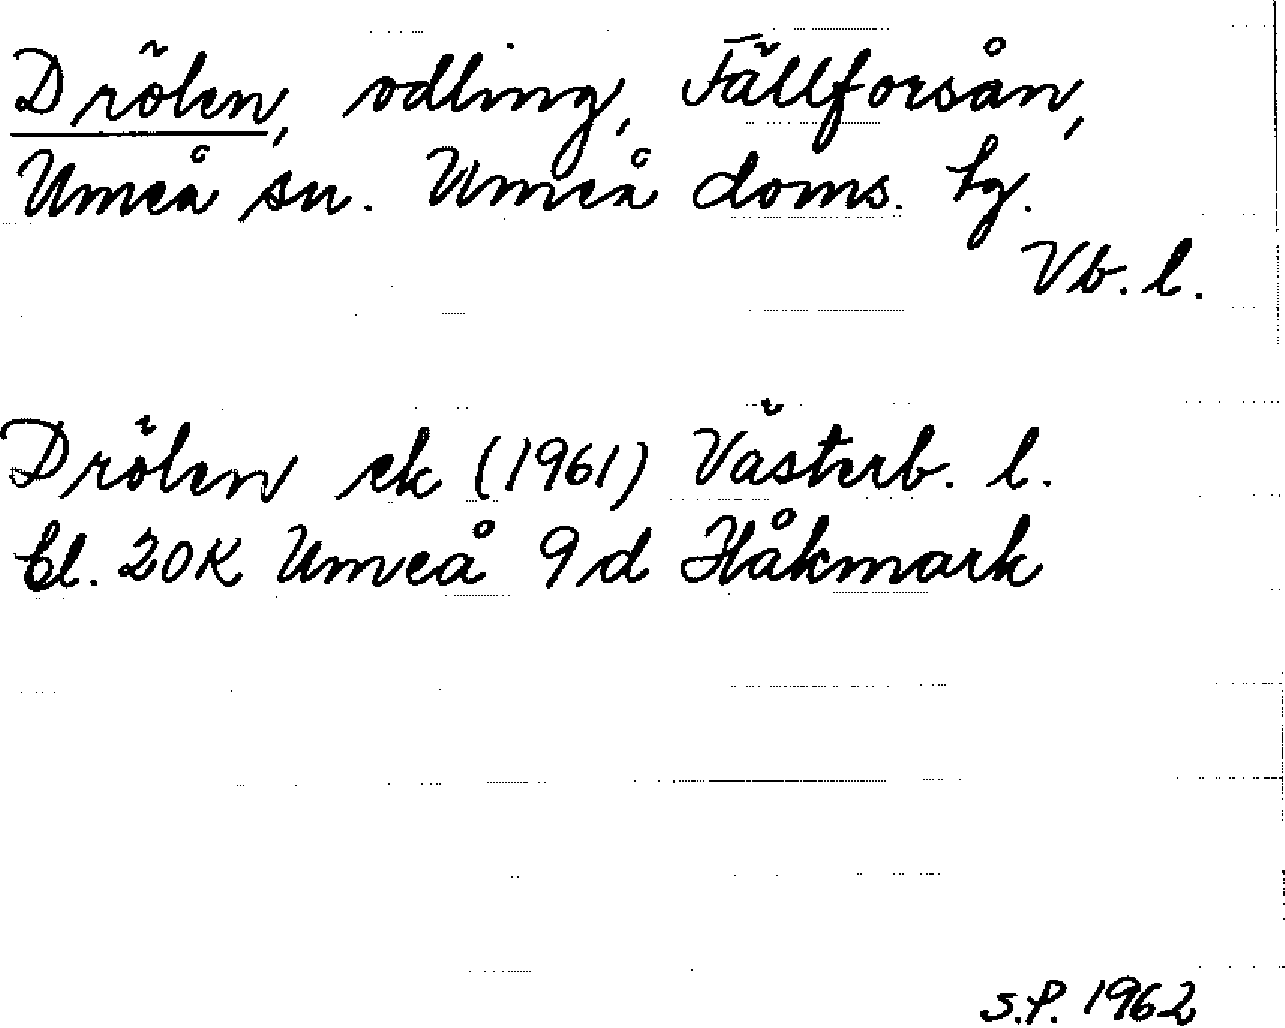 Drölen, odling, Fällforsån,
Umeå sn. Umeå doms. tg.
Vb. l.
Drölen ek (1961) Västerb. l.
bl. 20K Umeå 9d Håkmark
S.P. 1962